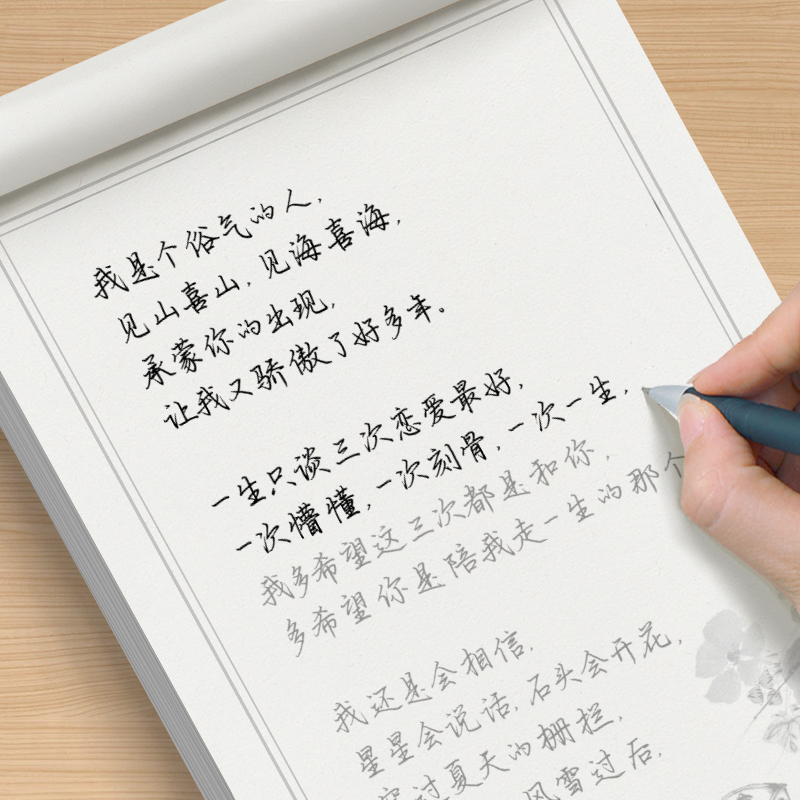 我是个俗气的人，
见山喜山，见海喜海，
承蒙你的出现，
让我又骄傲了好多年。
一生只谈三次恋爱最好，
一次懵懂，一次刻骨，一次一生，
我多希望这三次都是和你，
多希望你是陪我走一生的那个
我还是会相信，
星星会说话，石头会开花，
穿过夏天的栅栏，
风雪过后，